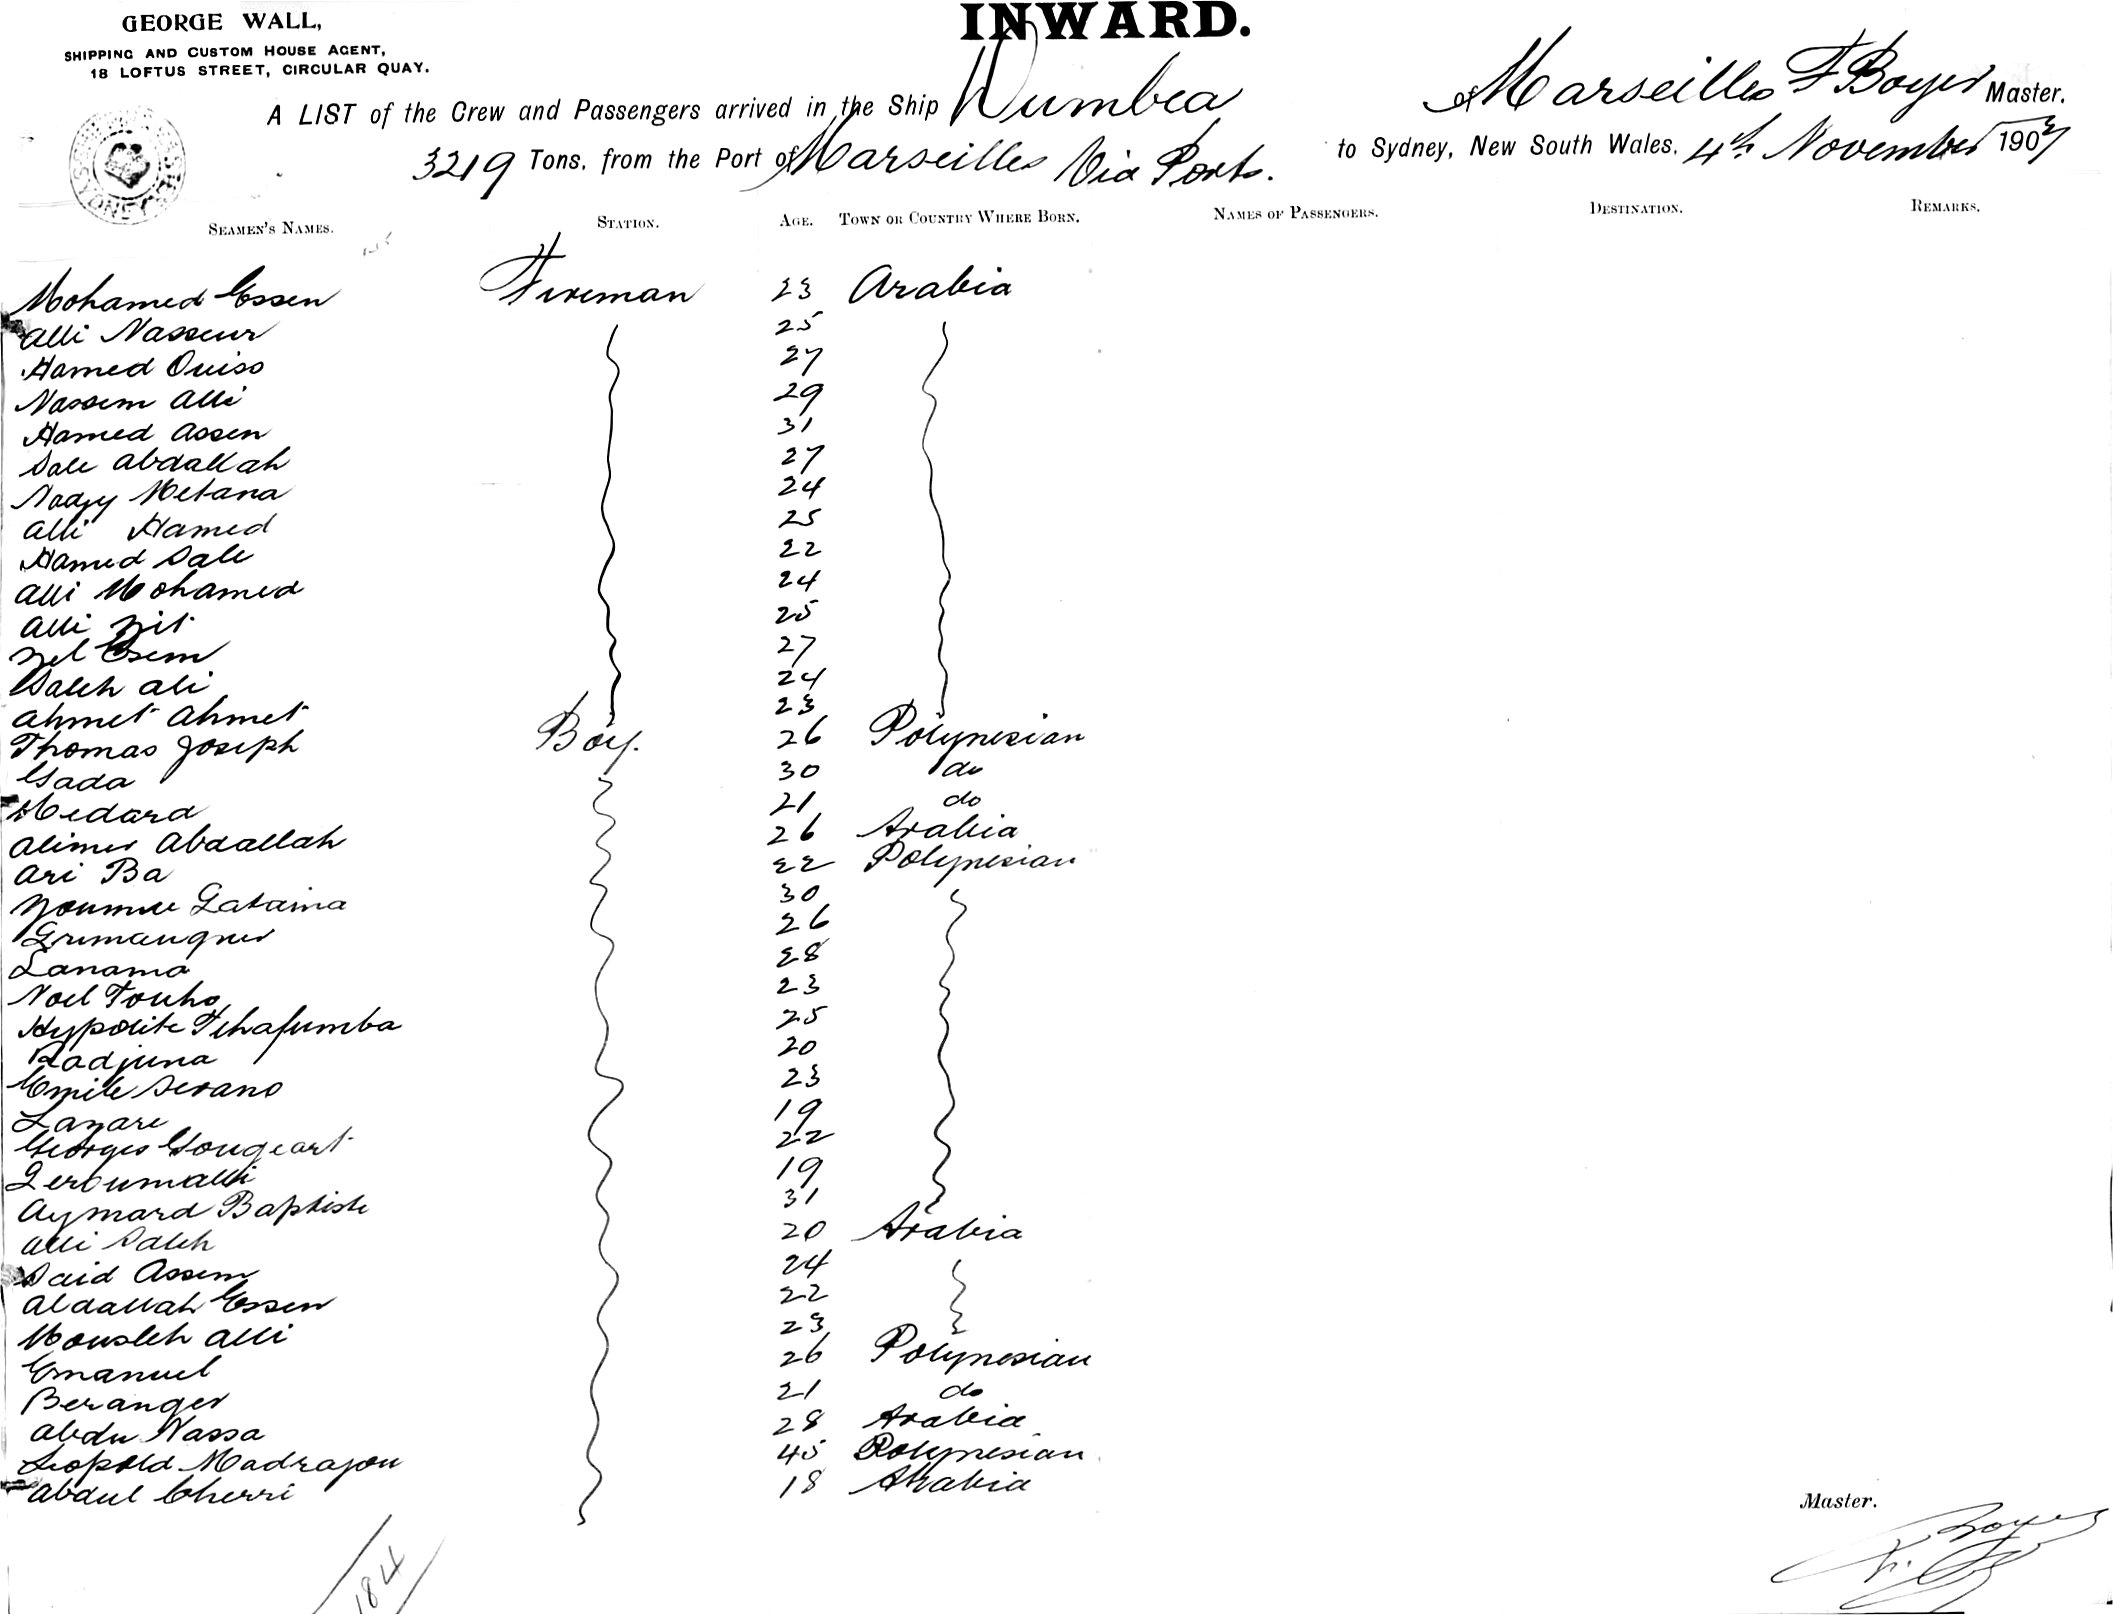 GEORGE WALL,
SHIPPING AND CUSTOM HOUSE AGENT,
18 LOFTUS STREET, CIRCULAR QUAY.
INWARD.
A LIST of the Crew and Passengers arrived in the Ship Numbea of Marseilles F Boyer Master.
3219 Tons, from the Port of Marseilles Via Ports. to Sydney, New South Wales, 4th November 1903
SEAMEN'S NAMES. STATION. AGE. TOWN OR COUNTRY WHERE BORN. NAMES OF PASSENGERS. DESTINATION. REMARKS.
Mohamed Essen Fireman 23 Arabia
Alli Nasseur 25
Hamed Ouiso 27
Nassem Alli 29
Hamed Assen 31
Sale Abdallah 27
Nadjy Metana 24
Alli Hamed 25
Hamed Sale 22
Alli Mohamed 24
Alli Zit 25
Zel Esem 27
Saleh Ali 24
Ahmet Ahmet 23
Thomas Joseph Boy. 26 Polynesian
Gada 30 do
Medard 21 do
Alimer Abdallah 26 Arabia
Ari Ba 22 Polynesian
Gataina 30
26
Lanama 28
Noel Touho 23
Hypolite Tehafumba 25
Radjuna 20
Emile Serano 23
Lazare 19
Georges Gougeart 22
Zeroumalli 19
Aymard Baptiste 31
Alli Saleh 20 Arabia
Said Assem 24
Abdallah Essen 22
Mousleh Alli 23
Emanuel 26 Polynesian
Beranger 21 do
Abdu Nassa 28 Arabia
Leopold Madrajou 45 Polynesian
Abdul Cherri 18 Arabia
Master.
184